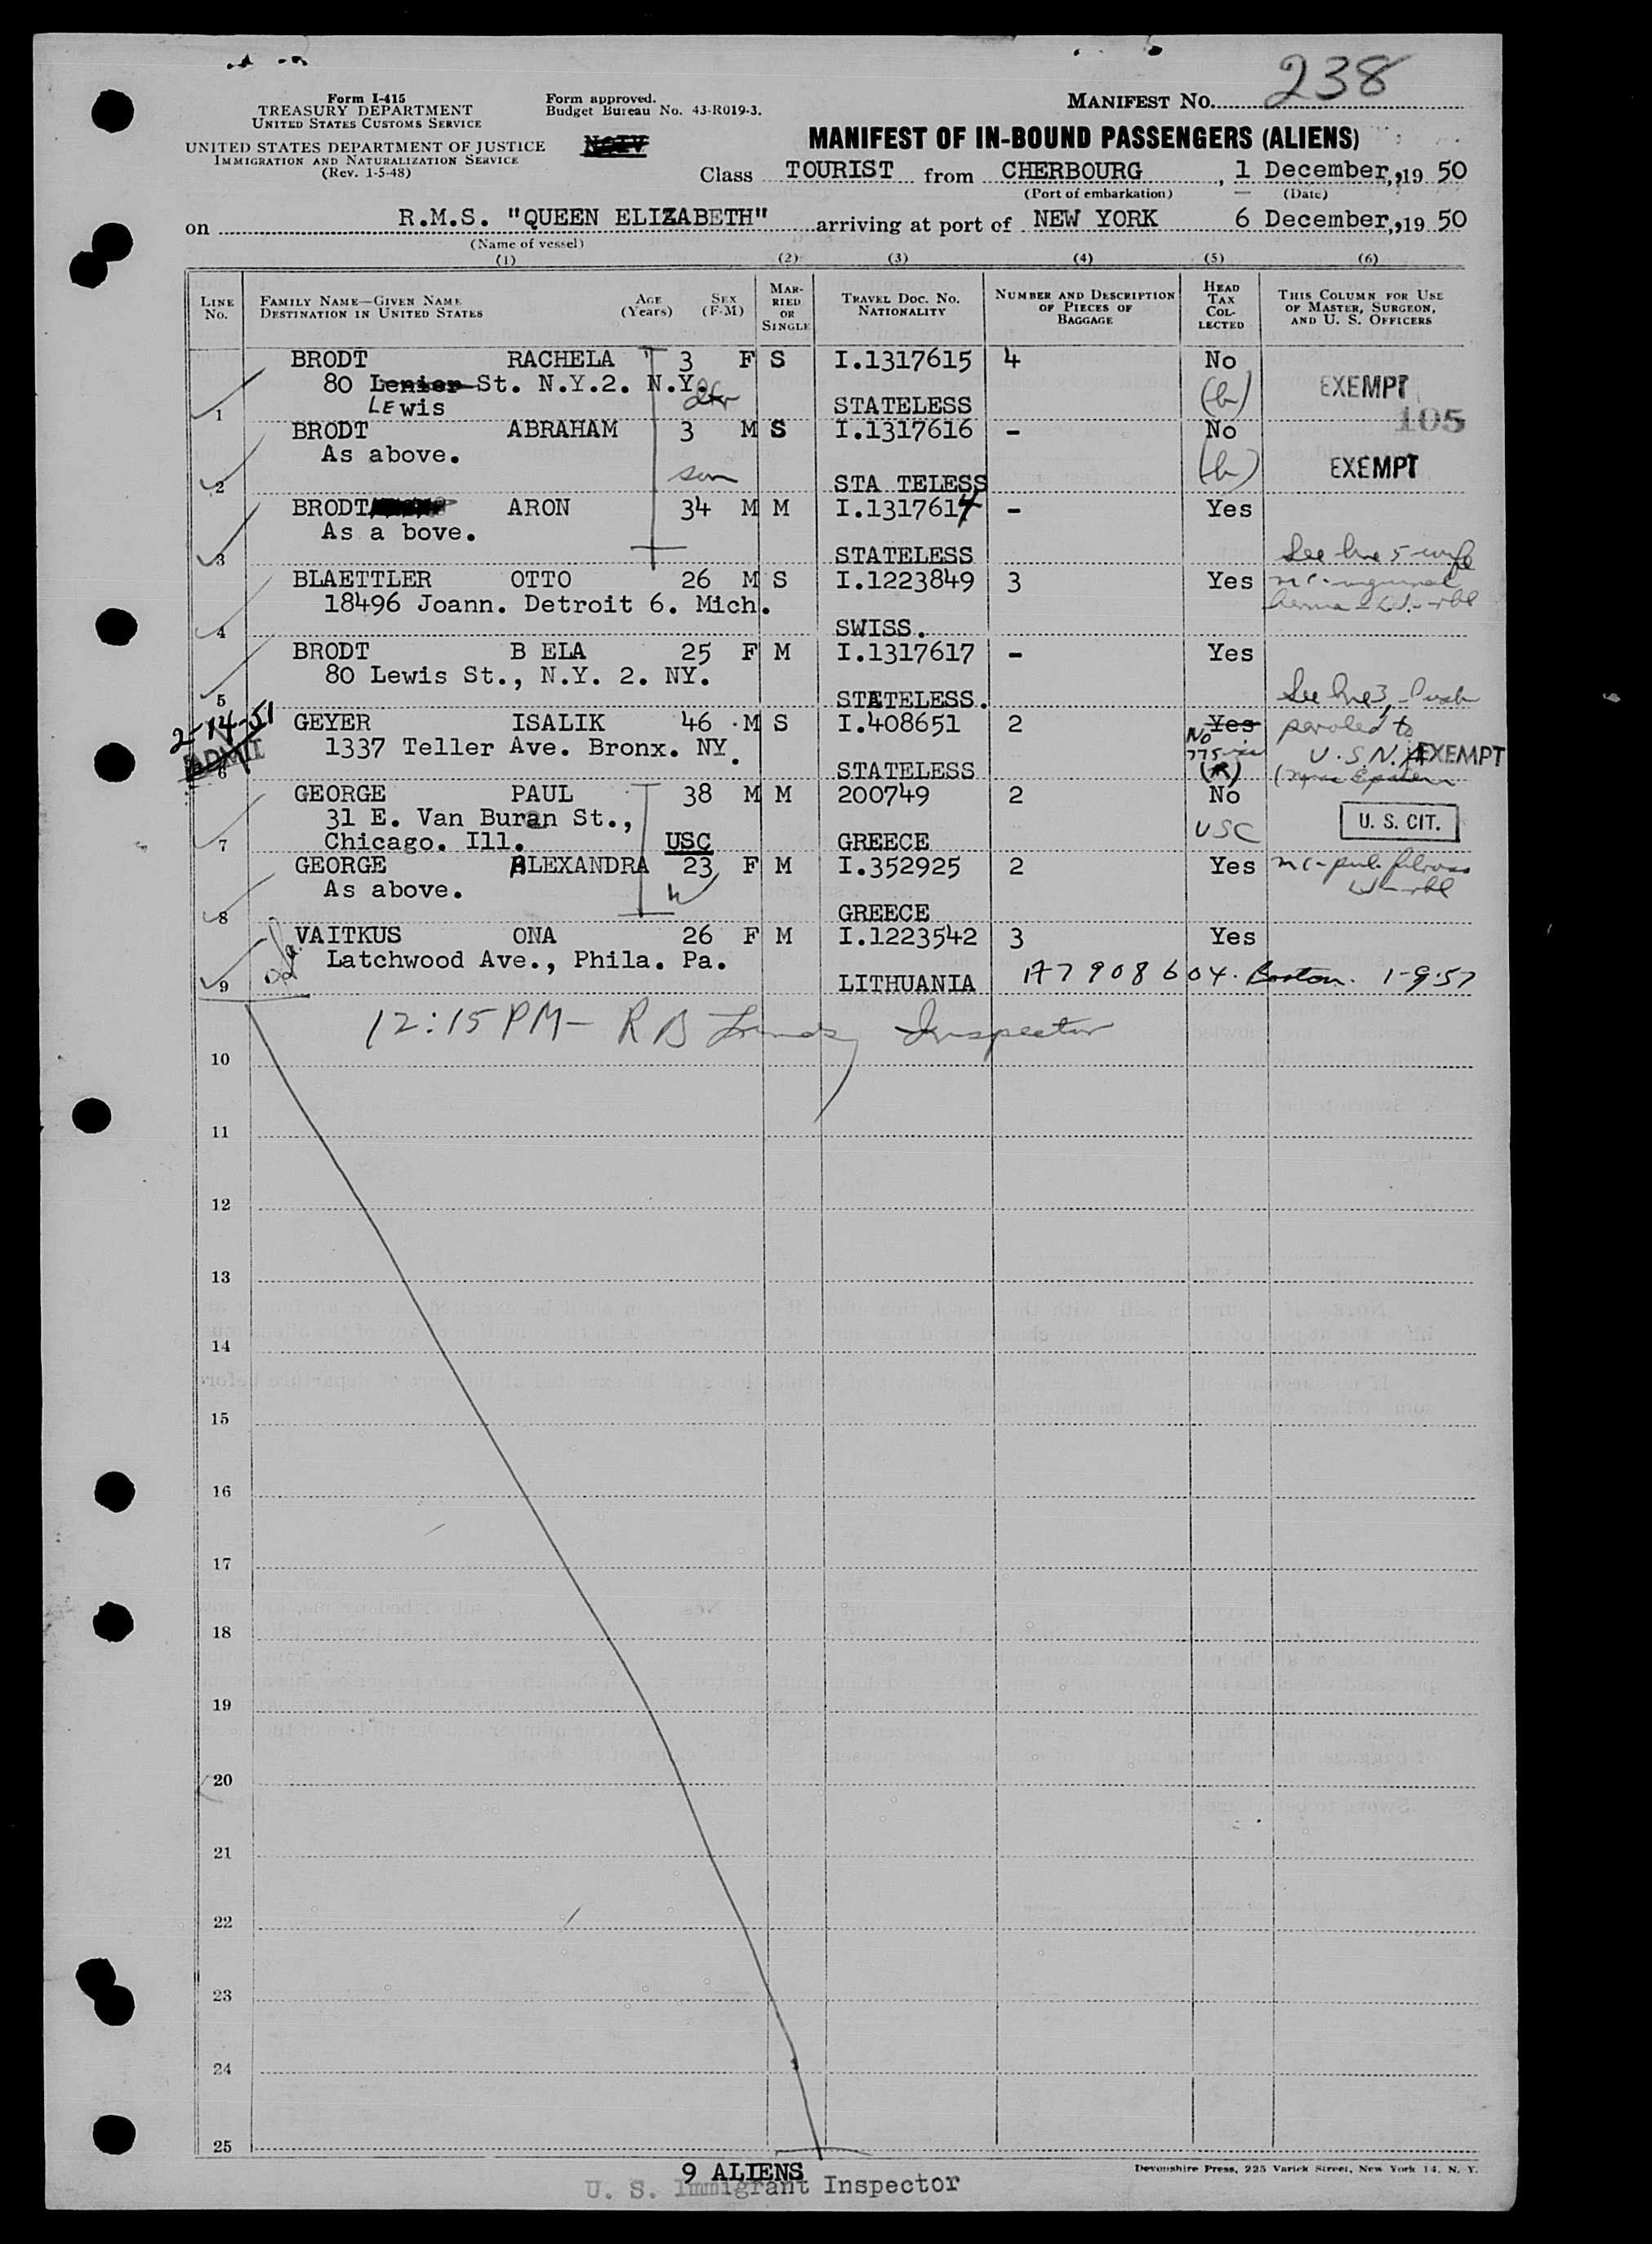 238
Form I-415
TREASURY DEPARTMENT
UNITED STATES CUSTOMS SERVICE
UNITED STATES DEPARTMENT OF JUSTICE
IMMIGRATION AND NATURALIZATION SERVICE
(Rev. 1-5-48)
Form approved.
Budget Bureau No. 43-R019-3.
MANIFEST NO.
MANIFEST OF IN-BOUND PASSENGERS (ALIENS)
Class TOURIST from CHERBOURG, 1 December, 19 50
(Port of embarkation) (Date)
on R.M.S. "QUEEN ELIZABETH" arriving at port of NEW YORK 6 December, 19 50
(Name of vessel)
(1) (2) (3) (4) (5) (6)
LINE NO. FAMILY NAME—GIVEN NAME DESTINATION IN UNITED STATES AGE (Years) SEX (F-M) MARRIED OR SINGLE TRAVEL DOC. NO. NATIONALITY NUMBER AND DESCRIPTION OF PIECES OF BAGGAGE HEAD TAX COLLECTED THIS COLUMN FOR USE OF MASTER, SURGEON, AND U. S. OFFICERS
BRODT RACHELA 3 F S I.1317615 4 No
80 Lenier St. N.Y.2. N.Y. (b) EXEMPT
1 LEwis STATELESS 105
BRODT ABRAHAM 3 M S I.1317616 - No
As above. (b) EXEMPT
2 son STA TELESS
BRODT ARON 34 M M I.1317614 - Yes
As a bove.
3 STATELESS See line 5 wife
BLAETTLER OTTO 26 M S I.1223849 3 Yes
18496 Joann. Detroit 6. Mich.
4 SWISS.
BRODT B ELA 25 F M I.1317617 - Yes
80 Lewis St., N.Y. 2. NY.
5 STATELESS. See line 3,
2-14-51 GEYER ISALIK 46 M S I.408651 2 Yes No paroled to
ADMIT 1337 Teller Ave. Bronx. NY. 775 U.S.N.A. EXEMPT
6 STATELESS (R)
GEORGE PAUL 38 M M 200749 2 No
31 E. Van Buran St., USC U. S. CIT.
7 Chicago. Ill. USC GREECE
GEORGE ALEXANDRA 23 F M I.352925 2 Yes
As above. W
8 GREECE
VAITKUS ONA 26 F M I.1223542 3 Yes
Latchwood Ave., Phila. Pa.
9 LITHUANIA A7908604. Boston. 1-9-57
12:15 PM - R B Inspector
10
11
12
13
14
15
16
17
18
19
20
21
22
23
24
25
9 ALIENS
U. S. Immigrant Inspector
Devonshire Press, 225 Varick Street, New York 14, N. Y.